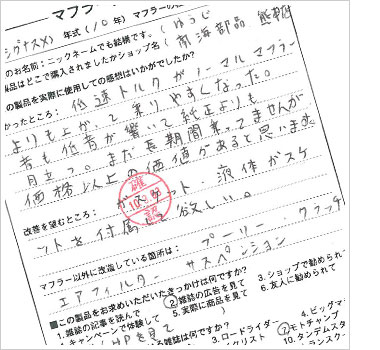 マフラー
シグナスX) 年式(10年) マフラーの
のお名前:ニックネームでも結構です。(ゆうじ
品はどこで購入されましたかショップ名(南海部品 熊
の製品を実際に使用しての感想はいかがでしたか?
かったところ:低速トルクがノーマルマフラー
よりも上がって乗りやすくなった。
音も低音が響いて純正よりも
目立つ。まだ長期間乗ってませんが
価格以上の価値があると思います
改善を望むところ:ガスケット・液体ガスケ
ットを付属して欲しい。
確
認
マフラー以外に改造している箇所は:プーリー・クラッチ
エアフィルター サスペンション
■この製品をお求めいただいたきっかけは何ですか?
1.雑誌の記事を読んで ②雑誌の広告を見て 3.ショップで勧められ
4.キャンペーンで体験して 5.実際に商品を見て 6.友人に勧められて
HPを見て
は何ですか?
3.ロードライダー 4.ビッグマ
⑦モトチャンプ
10.タンデムスタ